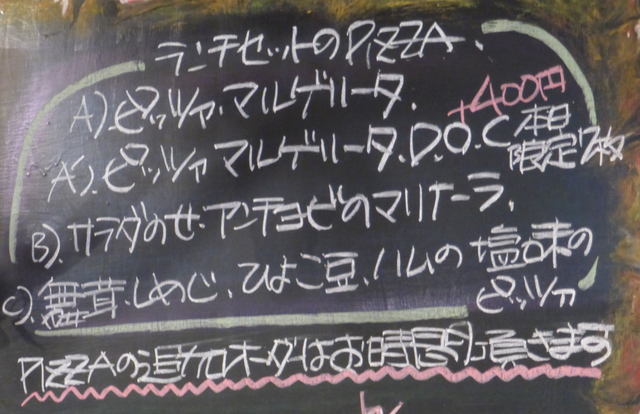 ランチセットのPIZZA.
A).ピッツァ.マルゲリータ.
+400円
A').ピッツァマルゲリータ.D.O.C 本日限定12枚
B).サラダのせ.アンチョビのマリナーラ.
C).舞茸.しめじ.ひよこ豆.ハムの塩味のピッツァ
PIZZAの追加オーダーはお時間頂きます